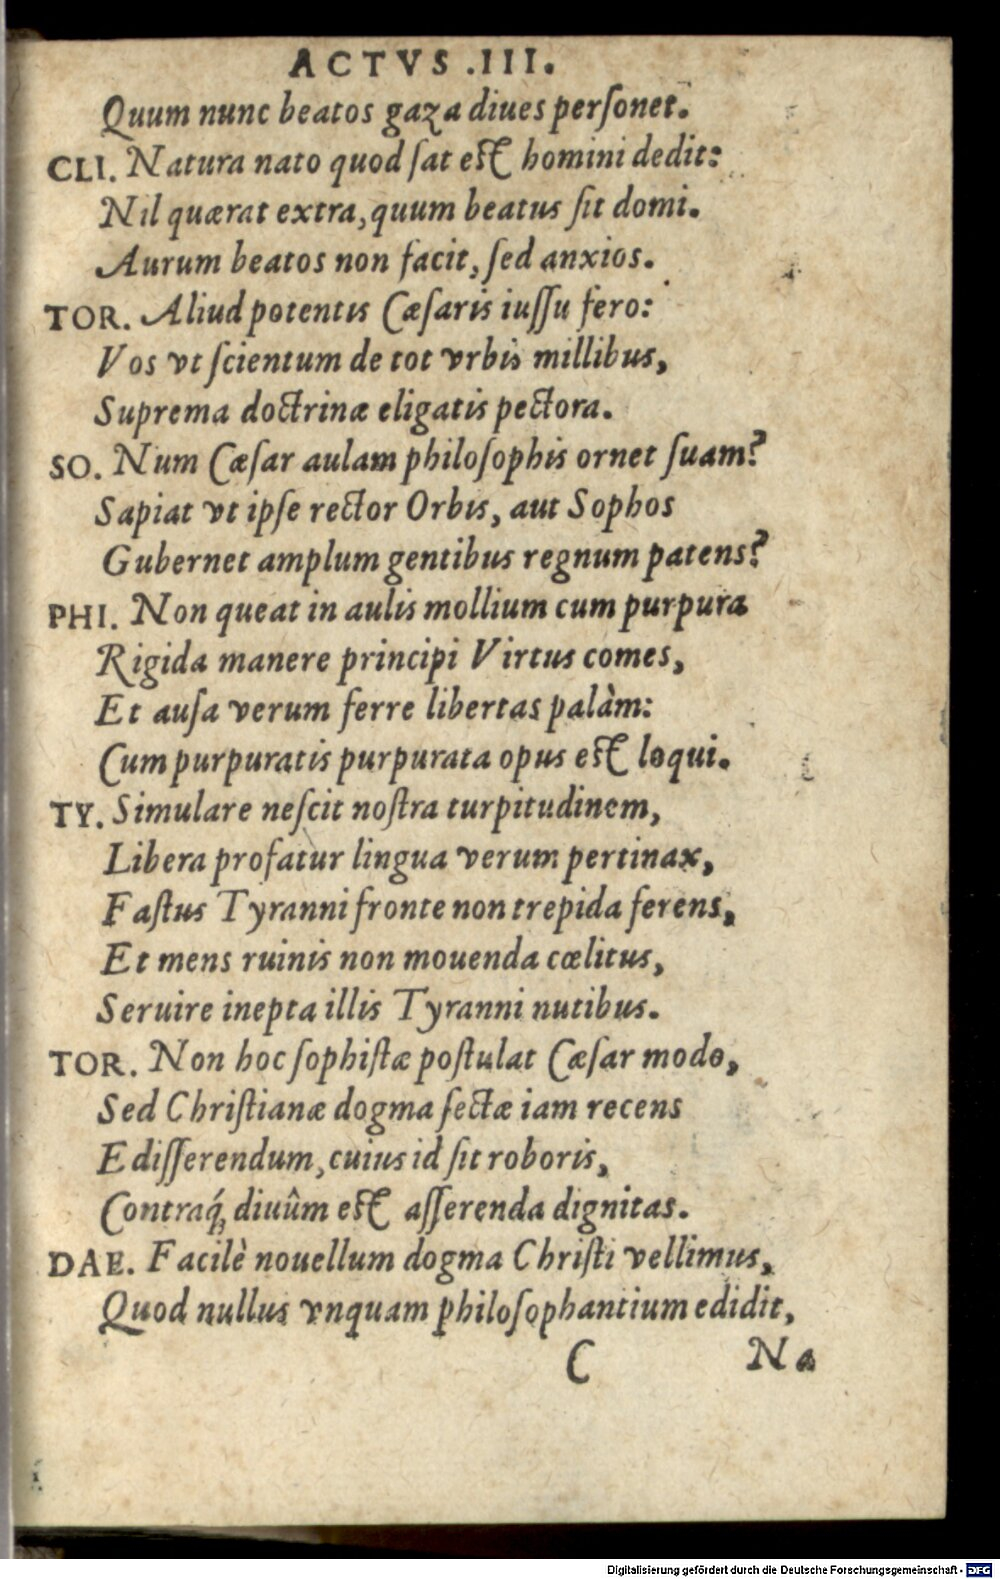 ACTVS .III.
Quum nunc beatos gaza diues perſonet.
CLI. Natura nato quod ſat eſt homini dedit:
Nil quærat extra, quum beatus ſit domi.
Aurum beatos non facit, ſed anxios.
TOR. Aliud potentis Cæſaris iuſſu fero:
Vos vt ſcientum de tot vrbis millibus,
Suprema doctrinæ eligatis pectora.
SO. Num Cæſar aulam philoſophis ornet ſuam?
Sapiat vt ipſe rector Orbis, aut Sophos
Gubernet amplum gentibus regnum patens?
PHI. Non queat in aulis mollium cum purpura
Rigida manere principi Virtus comes,
Et auſa verum ferre libertas palàm:
Cum purpuratis purpurata opus eſt loqui.
TY. Simulare neſcit noſtra turpitudinem,
Libera profatur lingua verum pertinax,
Faſtus Tyranni fronte non trepida ferens,
Et mens ruinis non mouenda cœlitus,
Seruire inepta illis Tyranni nutibus.
TOR. Non hoc ſophiſtæ poſtulat Cæſar modo,
Sed Chriſtianæ dogma ſectæ iam recens
Ediſſerendum, cuius id ſit roboris,
Contraq́; diuûm eſt aſſerenda dignitas.
DAE. Facilè nouellum dogma Chriſti vellimus,
Quod nullus vnquam philoſophantium edidit,
C Na
Digitalisierung gefördert durch die Deutsche Forschungsgemeinschaft - DFG